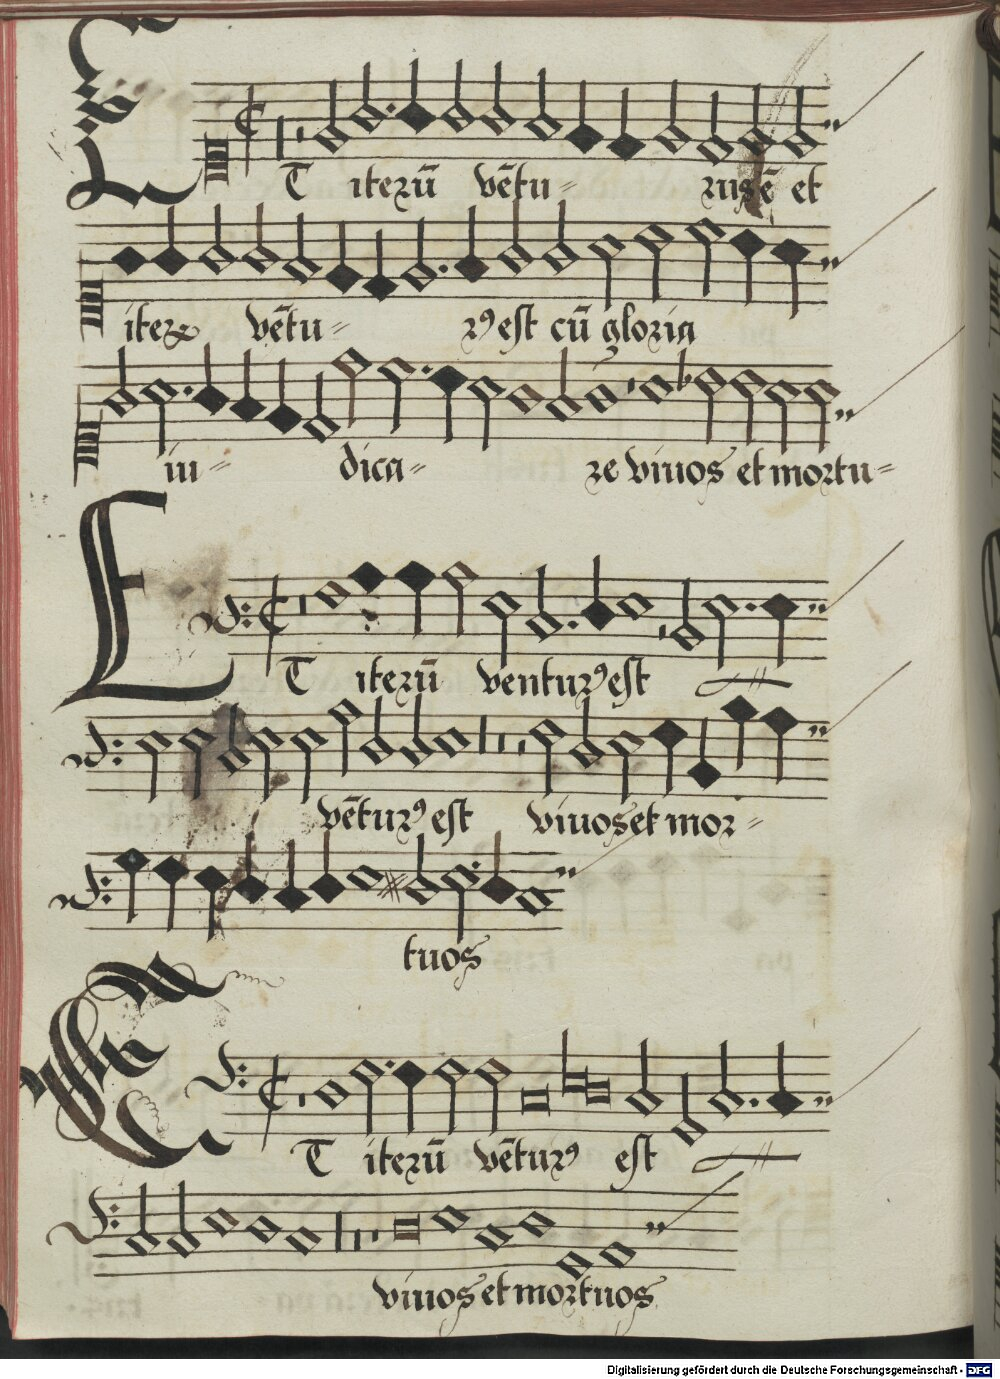 ET iterū vētu- rus ē et
iterꝝ vētu- rꝰ est cū gloria
iu- dica- re viuos et mortu-
ET iterū venturꝰ est
vēturꝰ est viuos et mor-
tuos
ET iterū vēturꝰ est
viuos et mortuos
Digitalisierung gefördert durch die Deutsche Forschungsgemeinschaft - DFG